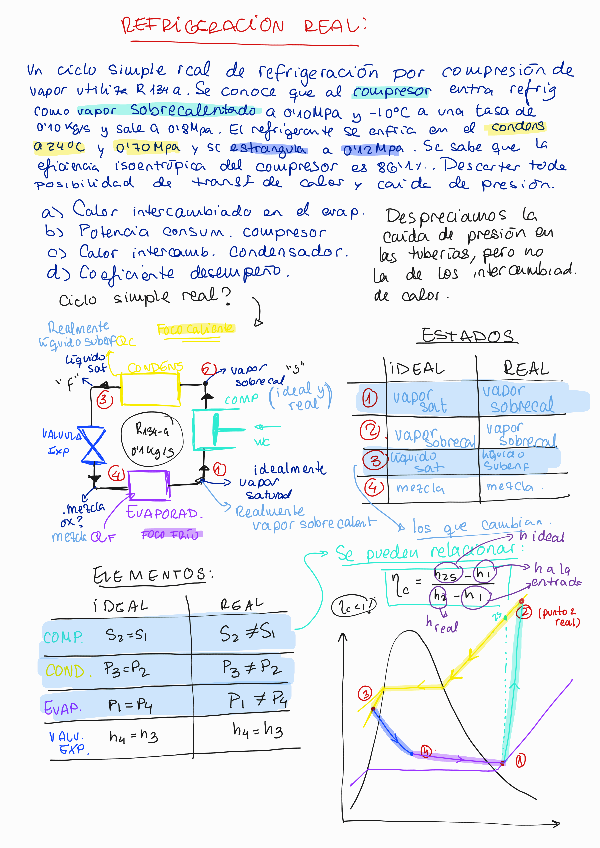 REFRIGERACIÓN REAL:
Un ciclo simple real de refrigeración por compresión de
vapor utiliza R134a. Se conoce que al compresor entra refrig
como vapor sobrecalentado a 0'10MPa y -10ºC a una tasa de
0'10 kg/s y sale a 0'8Mpa. El refrigerante se enfría en el condens
a 24ºC y 0'70Mpa y se estrangula a 0'12MPa. Se sabe que la
eficiencia isoentrópica del compresor es 86'1%. Descartar toda
posibilidad de transf de calor y caída de presión.
a) Calor intercambiado en el evap.
b) Potencia consum. compresor
c) Calor intercamb. condensador.
d) Coeficiente desempeño.
Despreciamos la
caída de presión en
las tuberías, pero no
la de los intercambiad.
de calor.
Ciclo simple real?
Realmente
líquido subenf
QC
Foco caliente
líquido
sat
"f"
CONDENS
③
②
vapor
sobrecal
"s"
COMP
(ideal y
real)
VALVULA
EXP
R134-a
0'1 kg/s
WC
④
①
idealmente
vapor
saturad
Realmente
vapor sobrecalent
mezcla
¿x?
mezcla
QF
EVAPORAD.
FOCO FRÍO
ESTADOS
IDEAL REAL
① vapor sat vapor sobrecal
② vapor sobrecal vapor sobrecal
③ líquido sat líquido subenf
④ mezcla mezcla.
los que cambian.
Se pueden relacionar:
ηc = (h2s - h1) / (h2 - h1)
h ideal
h a la
entrada
h real
ηc<1!
ELEMENTOS:
IDEAL REAL
COMP. S2=S1 S2≠S1
COND. P3=P2 P3≠P2
EVAP. P1=P4 P1≠P4
VALV. EXP. h4=h3 h4=h3
② (punto 2
real)
③
④
①